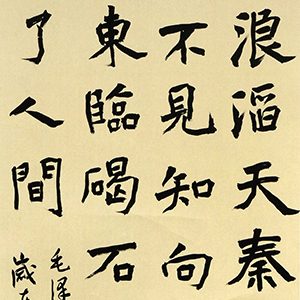 浪滔天秦
不見知向
東臨碣石
了人間
毛澤
歲在